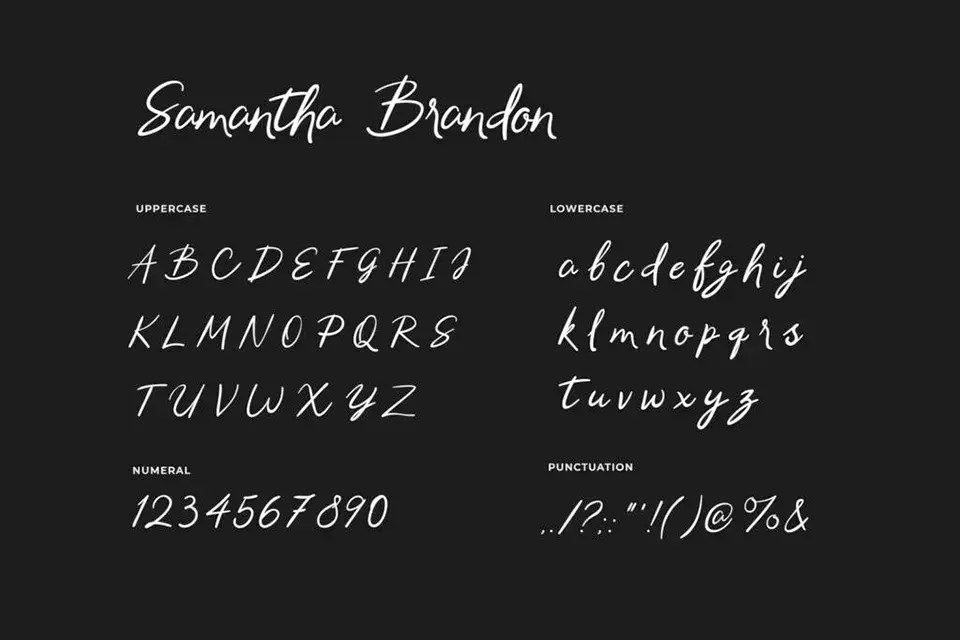 Samantha Brandon
UPPERCASE
A B C D E F G H I J
K L M N O P Q R S
T U V W X Y Z
LOWERCASE
a b c d e f g h i j
k l m n o p q r s
t u v w x y z
NUMERAL
1 2 3 4 5 6 7 8 9 0
PUNCTUATION
, . / ? ; : " ' ! ( ) @ % &